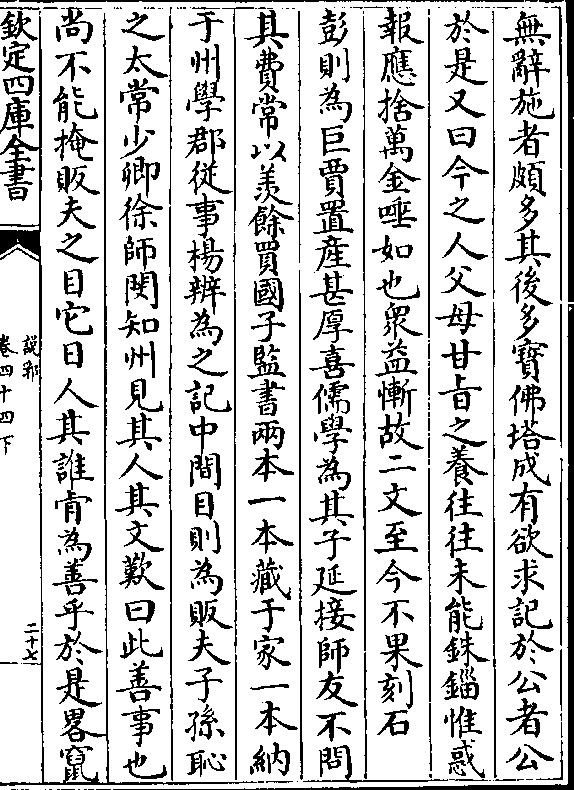 無辭施者頗多其後多寶佛塔成有欲求記於公者公
於是又曰今之人父母甘旨之養往往未能銖錙惟惑
報應捨萬金唾如也衆益慚故二文至今不果刻石
彭則為巨賈置産甚厚喜儒學為其子延接師友不問
其費常以羨餘買國子監書兩本一本藏于家一本納
于州學郡從事楊辨為之記中間目則為販夫子孫恥
之太常少卿徐師閔知州見其人其文歎曰此善事也
尚不能掩販夫之目它日人其誰肯為善乎於是畧竄
欽定四庫全書
說郛
卷四十四下
二十七